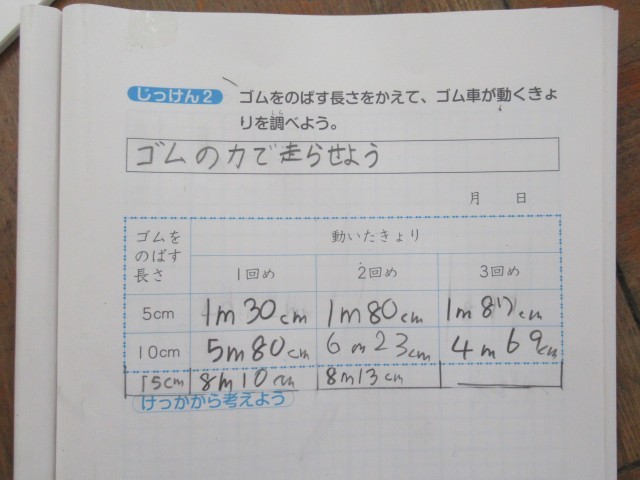 じっけん2 ゴムをのばす長さをかえて、ゴム車が動くきょ
りを調べよう。
ゴムの力で走らせよう
月 日
ゴムを
のばす
長さ
動いたきょり
1回め 2回め 3回め
5cm 1m30cm 1m80cm
10cm 5m80cm 6m23cm 4m69cm
15cm 8m10cm 8m13cm
けっかから考えよう